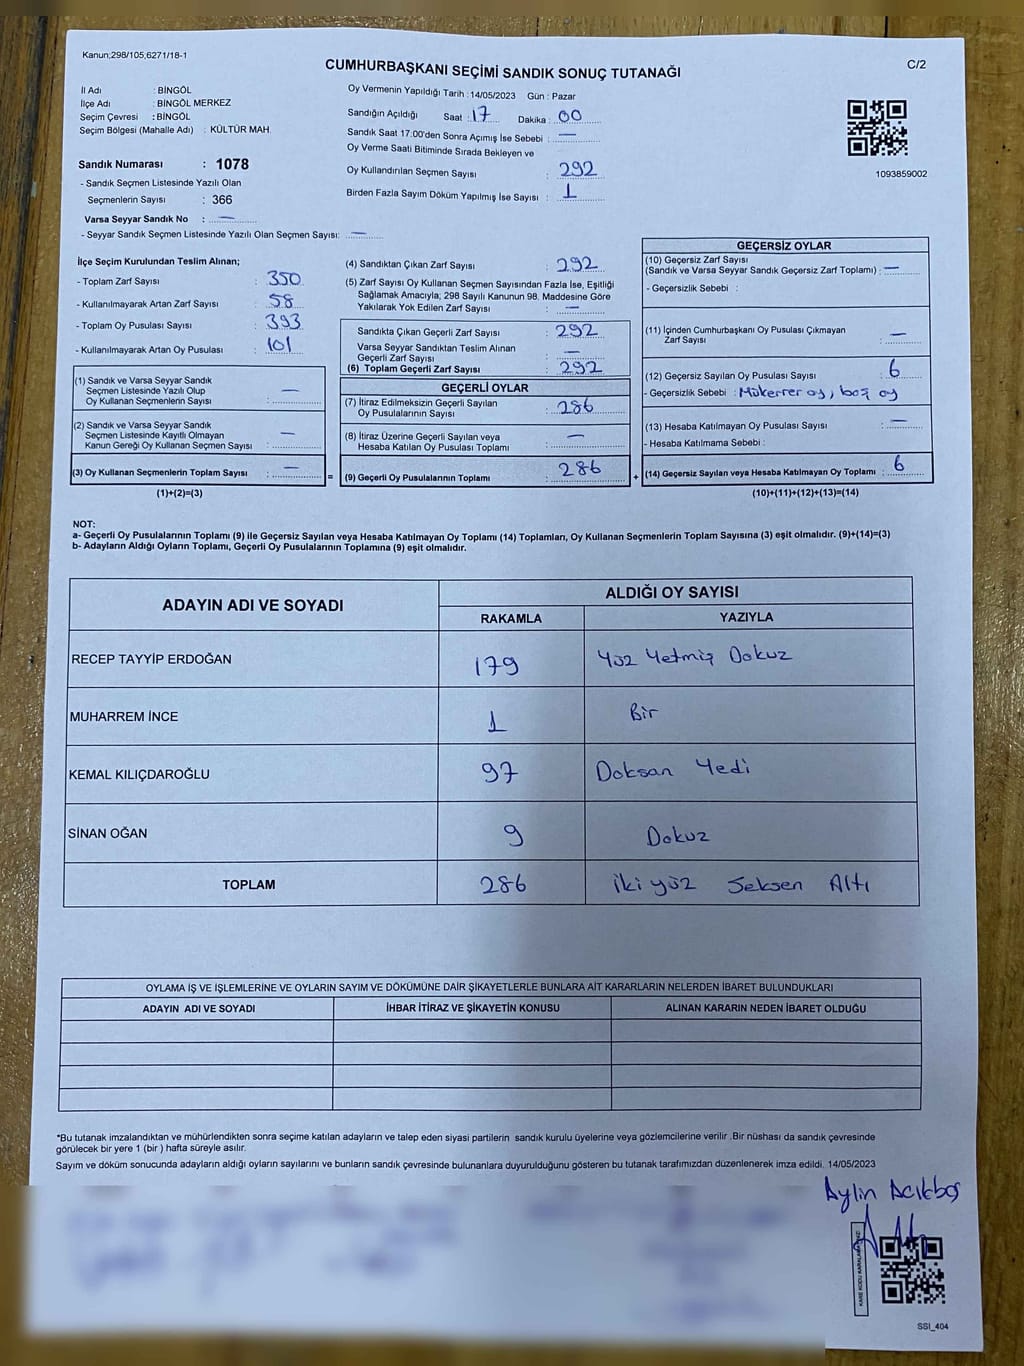 Kanun;298/105,6271/18-1
CUMHURBAŞKANI SEÇİMİ SANDIK SONUÇ TUTANAĞI
C/2
İl Adı : BİNGÖL
İlçe Adı : BİNGÖL MERKEZ
Seçim Çevresi : BİNGÖL
Seçim Bölgesi (Mahalle Adı) : KÜLTÜR MAH.
Sandık Numarası : 1078
- Sandık Seçmen Listesinde Yazılı Olan
Seçmenlerin Sayısı : 366
Varsa Seyyar Sandık No : —
- Seyyar Sandık Seçmen Listesinde Yazılı Olan Seçmen Sayısı: —
Oy Vermenin Yapıldığı Tarih :14/05/2023 Gün : Pazar
Sandığın Açıldığı Saat : 17 Dakika : 00
Sandık Saat 17.00'den Sonra Açımış İse Sebebi : —
Oy Verme Saati Bitiminde Sırada Bekleyen ve
Oy Kullandırılan Seçmen Sayısı : 292
Birden Fazla Sayım Döküm Yapılmış İse Sayısı : 1
1093859002
İlçe Seçim Kurulundan Teslim Alınan;
- Toplam Zarf Sayısı : 350
- Kullanılmayarak Artan Zarf Sayısı : 58
- Toplam Oy Pusulası Sayısı : 393
- Kullanılmayarak Artan Oy Pusulası : 101
(1) Sandık ve Varsa Seyyar Sandık
Seçmen Listesinde Yazılı Olup
Oy Kullanan Seçmenlerin Sayısı : —
(2) Sandık ve Varsa Seyyar Sandık
Seçmen Listesinde Kayıtlı Olmayan
Kanun Gereği Oy Kullanan Seçmen Sayısı : —
(3) Oy Kullanan Seçmenlerin Toplam Sayısı : — =
(1)+(2)=(3)
(4) Sandıktan Çıkan Zarf Sayısı : 292
(5) Zarf Sayısı Oy Kullanan Seçmen Sayısından Fazla İse, Eşitliği
Sağlamak Amacıyla; 298 Sayılı Kanunun 98. Maddesine Göre
Yakılarak Yok Edilen Zarf Sayısı : —
Sandıkta Çıkan Geçerli Zarf Sayısı : 292
Varsa Seyyar Sandıktan Teslim Alınan
Geçerli Zarf Sayısı : —
(6) Toplam Geçerli Zarf Sayısı : 292
GEÇERLİ OYLAR
(7) İtiraz Edilmeksizin Geçerli Sayılan
Oy Pusulalarının Sayısı : 286
(8) İtiraz Üzerine Geçerli Sayılan veya
Hesaba Katılan Oy Pusulası Toplamı : —
(9) Geçerli Oy Pusulalarının Toplamı : 286 +
GEÇERSİZ OYLAR
(10) Geçersiz Zarf Sayısı
(Sandık ve Varsa Seyyar Sandık Geçersiz Zarf Toplamı) : —
- Geçersizlik Sebebi :
(11) İçinden Cumhurbaşkanı Oy Pusulası Çıkmayan
Zarf Sayısı : —
(12) Geçersiz Sayılan Oy Pusulası Sayısı : 6
- Geçersizlik Sebebi : Mükerrer oy, boş oy
(13) Hesaba Katılmayan Oy Pusulası Sayısı : —
- Hesaba Katılmama Sebebi :
(14) Geçersiz Sayılan veya Hesaba Katılmayan Oy Toplamı : 6
(10)+(11)+(12)+(13)=(14)
NOT:
a- Geçerli Oy Pusulalarının Toplamı (9) ile Geçersiz Sayılan veya Hesaba Katılmayan Oy Toplamı (14) Toplamları, Oy Kullanan Seçmenlerin Toplam Sayısına (3) eşit olmalıdır. (9)+(14)=(3)
b- Adayların Aldığı Oyların Toplamı, Geçerli Oy Pusulalarının Toplamına (9) eşit olmalıdır.
ADAYIN ADI VE SOYADI
ALDIĞI OY SAYISI
RAKAMLA YAZIYLA
RECEP TAYYİP ERDOĞAN 179 Yüz Yetmiş Dokuz
MUHARREM İNCE 1 Bir
KEMAL KILIÇDAROĞLU 97 Doksan Yedi
SİNAN OĞAN 9 Dokuz
TOPLAM 286 İki yüz Seksen Altı
OYLAMA İŞ VE İŞLEMLERİNE VE OYLARIN SAYIM VE DÖKÜMÜNE DAİR ŞİKAYETLERLE BUNLARA AİT KARARLARIN NELERDEN İBARET BULUNDUKLARI
ADAYIN ADI VE SOYADI İHBAR İTİRAZ VE ŞİKAYETİN KONUSU ALINAN KARARIN NEDEN İBARET OLDUĞU
*Bu tutanak imzalandıktan ve mühürlendikten sonra seçime katılan adayların ve talep eden siyasi partilerin sandık kurulu üyelerine veya gözlemcilerine verilir .Bir nüshası da sandık çevresinde
görülecek bir yere 1 (bir ) hafta süreyle asılır.
Sayım ve döküm sonucunda adayların aldığı oyların sayılarını ve bunların sandık çevresinde bulunanlara duyurulduğunu gösteren bu tutanak tarafımızdan düzenlenerek imza edildi. 14/05/2023
Aylin Acıkboş
SSI_404